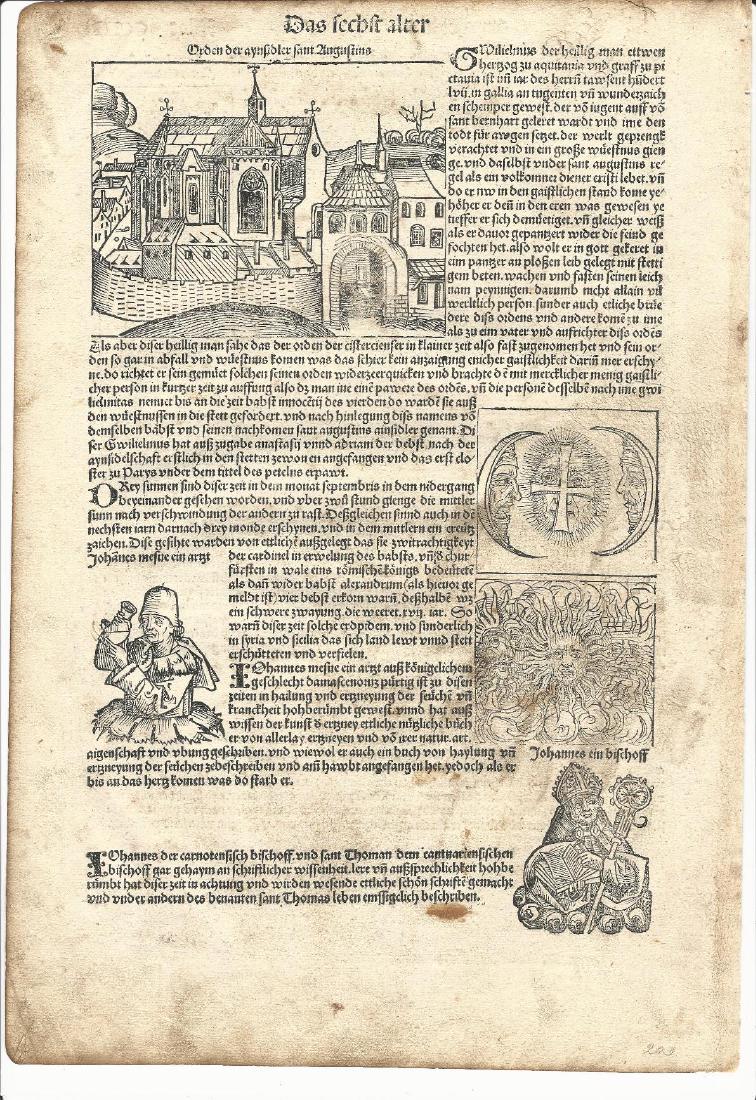 Das sechst alter
Orden der aynsidler sant Augustins
GWilielmus der heilig man ettwen
hertzog zu aquitania vnd graff zu pi
ctauia ist vm̃ iar des herrn tawsent hũdert
lvij. in gallia an tugenten vñ wunderzaich
en scheinper gewest. der võ iugent auff võ
sant bernhart geleret wardt vnd ime den
todt für awgen setzet. der werlt geprengk
verachtet vnd in ein große wüestnus gien
ge. vnd daselbst vnder sant augustins re-
gel als ein volkomner diener cristi lebet. vñ
do er nw in den gaistlichen stand kome ye
höher er deñ in den eren was gewesen ye
tieffer er sich demütiget. vñ gleicher weiß
als er dauor gepantzert wider die feind ge
fochten het. also wolt er in gott gekeret in
eim pantzer an ploßen leib gelegt mit stetti
gem beten. wachen vnd fasten seinen leich
nam peynigen. darumb nicht allain vil
werltlich person sunder auch etliche brüe
dere diss ordens vnd andere komẽ zu ime
als zu eim vater vnd auffrichter diss ordẽs
Als aber diser heillig man sahe das der orden der cistercienser in klainer zeit also fast zugenomen het vnd sein or-
den so gar in abfall vnd wüestnus komen was das schier kein anzaigung enicher gaistlichkeit darin̄ mer erschy-
ne. do richtet er sein gemüt solchen seinen orden widerzeerquicken vnd brachte dẽ mit mercklicher menig gaistli-
cher person in kurtzer zeit zu auffung also dz man ine einẽ pawere des ordẽs. vñ die personẽ desselbẽ nach ime gwi
lielmitas nennet bis an die zeit babst innocẽtij des vierden do wardẽ sie auß
den wüestnussen in die stett gefordert. vnd nach hinlegung diss namens võ
demselben babst vnd seinen nachkomen sant augustins ainsidler genant. Di
ser Gwilielmus hat auß zugabe anastasij vnnd adriani der bebst. nach der
aynsidelschaft erstlich in den stetten zewonen angefangen vnd das erst clo-
ster zu Parys vnder dem tittel des petelns erpawt.
DRey sunnen sind diser zeit in dem monat septembris in dem nidergang
beyeinander gesehen worden. vnd vber zwũ stund gienge die mittler
sunn nach verschwindung der andern zu rast. Deßgleichen sind auch in dẽ
nechsten iarn darnach drey monde erschynen. vnd in dem mittlern ein creütz
zaichen. Dise gesihte warden von ettlichẽ außgelegt das sie zwitrachtigkeyt
Johãnes mesue ein artzt
der cardinel in erwelung des babsts. vñ & chur
fürsten in wale eins römischẽ königs bedeütetẽ
als dañ wider babst alexandrum (als hieuor ge
meldt ist) vier bebst erkorn warñ. deßhalbẽ wz
ein schwere zwayung. die weeret. xvij. iar. So
warñ diser zeit solche erdpidem. vnd sunderlich
in syria vnd sicilia das sich land lewt vnnd stett
erschütteten vnd verfielen.
IOhannes mesue ein artzt auß königelichem
geschlecht damascenorũ pürtig ist zu disen
zeiten in hailung vnd ertzneyung der seüchẽ vñ
kranckheit hohberümbt gewest. vnnd hat auß
wissen der kunst & ertzney ettliche nützliche büch
er von allerlay ertzneyen vnd võ irer natur. art.
aigenschaft vnd vbung geschriben. vnd wiewol er auch ein buch von haylung vñ
ertzneyung der seüchen zebeschreiben vnd am̃ hawbt angefangen het. yedoch als er
bis an das hertz komen was do starb er.
Johannes ein bischoff
IOhannes der carnotensisch bischoff. vnd sant Thoman dem cantuariensischen
bischoff gar gehaym an schriftlicher wissenheit. lere vñ außsprechlichkeit hohbe
rümbt hat diser zeit in achtung vnd wirden wesende ettliche schön schriftẽ gemacht
vnd vnder andern des benanten sant Thomas leben emssigclich beschriben.
203